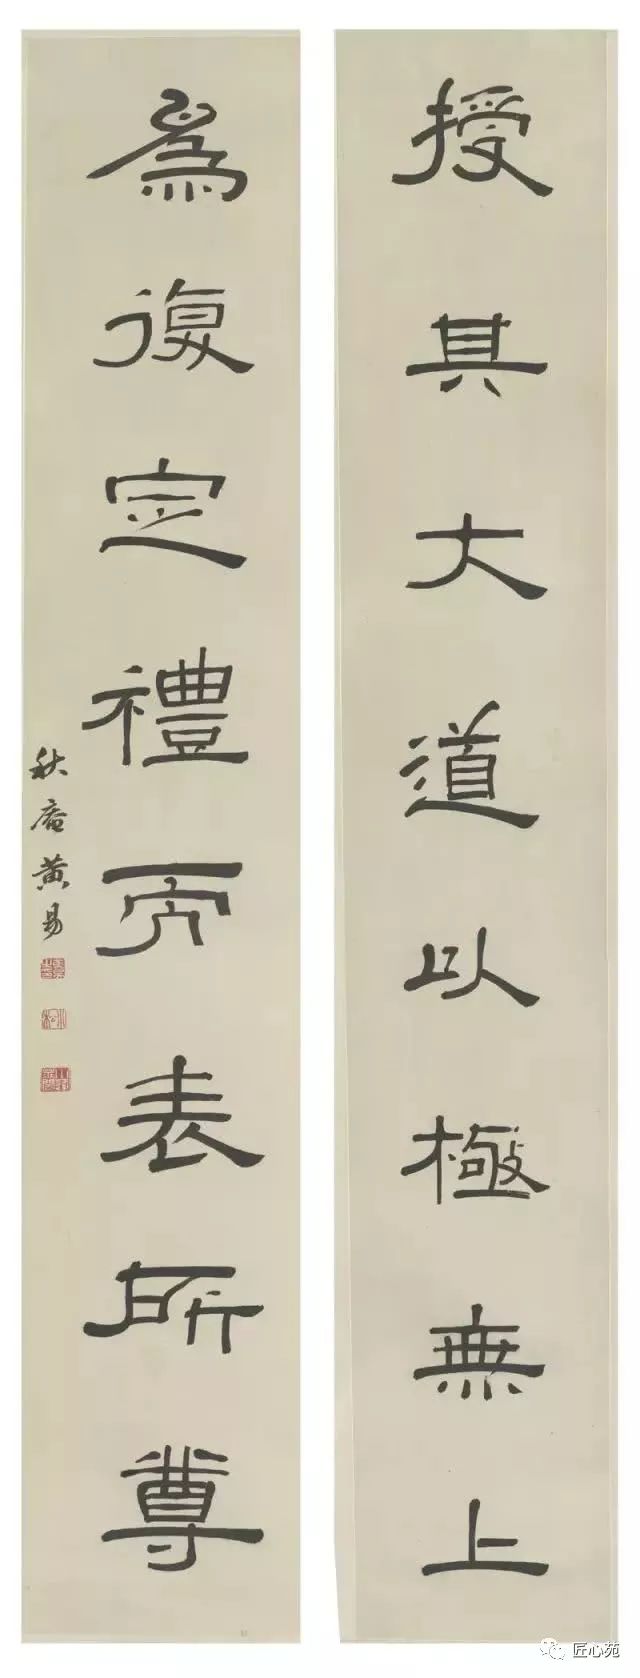 授其大道以極無上
為復定禮而表所尊
秋盦黃易
小松
匠心苑